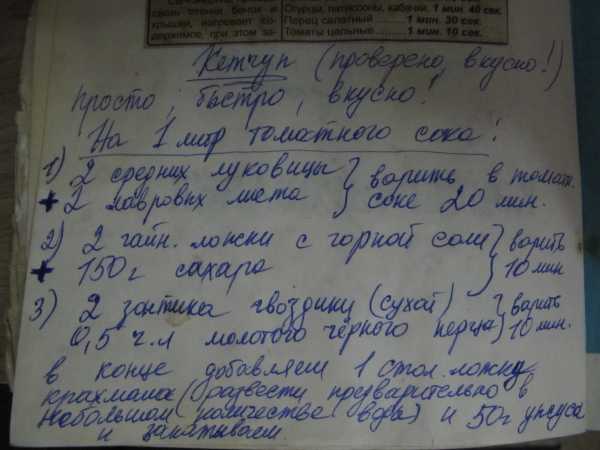 свою стенки бочки и
крышки, нагревает со-
держимое, при этом за-
Огурцы, патиссоны, кабачки. 1 мин. 40 сек.
Перец салатный 1 мин. 30 сек.
Томаты цельные 1 мин. 10 сек.
Кетчуп (проверено, вкусно!)
просто, быстро, вкусно!
На 1 литр томатного сока:
1) 2 средних луковицы } варить в томатн.
+ 2 лавровых листа } соке 20 мин.
2) 2 чайн. ложки с горкой соли } варить
+ 150 г сахара } 10 мин
3) 2 зонтика гвоздики (сухой) } варить
0,5 ч.л молотого чёрного перца } 10 мин.
в конце добавляем 1 стол. ложку
крахмала (развести предварительно в
небольшом количестве воды) и 50 г уксуса
и закатываем